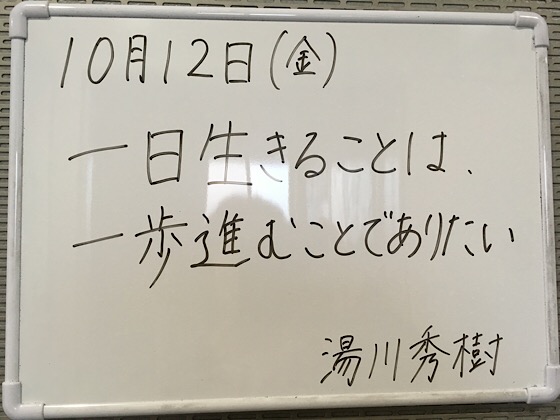 10月12日(金)
一日生きることは、
一歩進むことでありたい
湯川秀樹